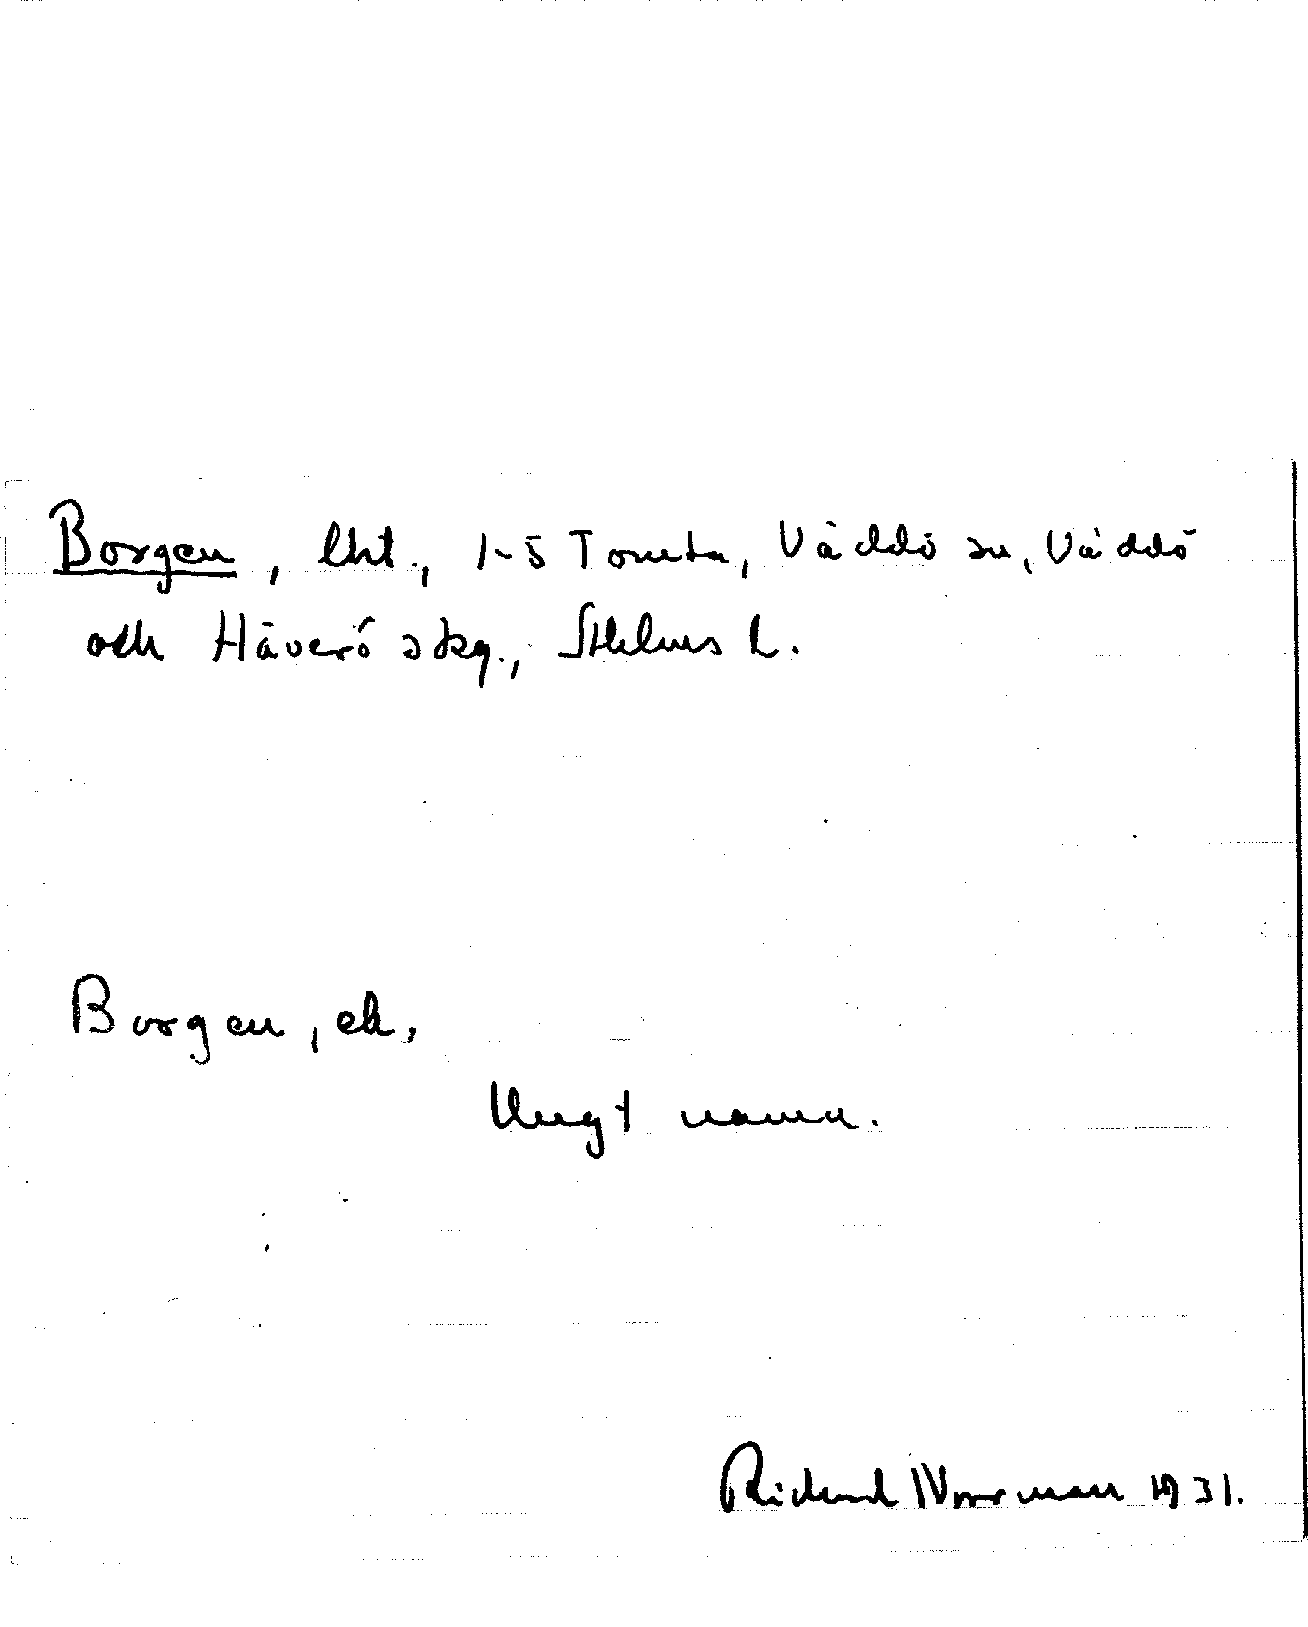 Borgen, lht., 1-5 Tomta, Väddö sn, Väddö
och Häverö skg., Sthlms L.
Borgen, ek.
Ungt namn.
Richard Norrman 1931.